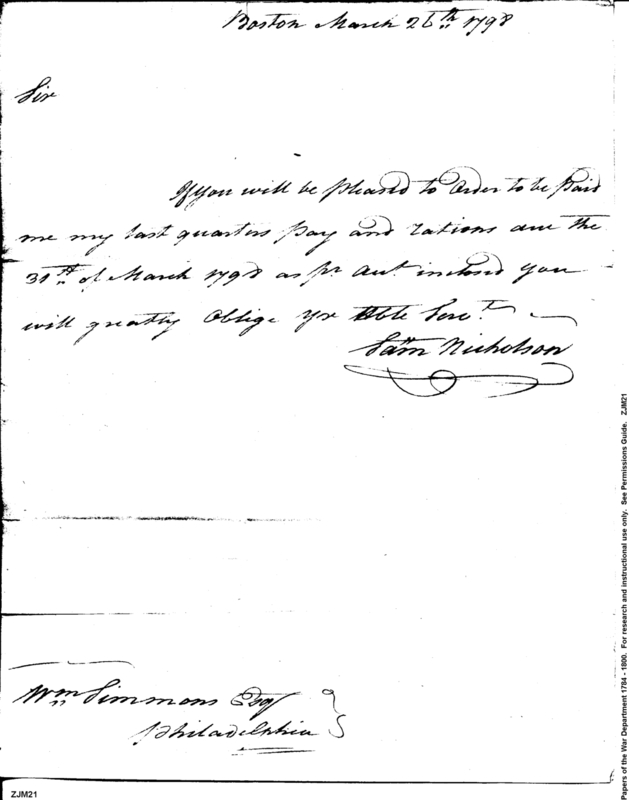 Boston March 26th 1798
Sir
If you will be pleased to Order to be Paid
me my last quarters pay and rations due the
31st of March 1798 as pr Acct inclosed you
will greatly Oblige yr Hble Servt
Sam Nicholson
Wm Simmons Esqr
Philadelphia
ZJM21
Papers of the War Department 1784 - 1800. For research and instructional use only. See Permissions Guide. ZJM21